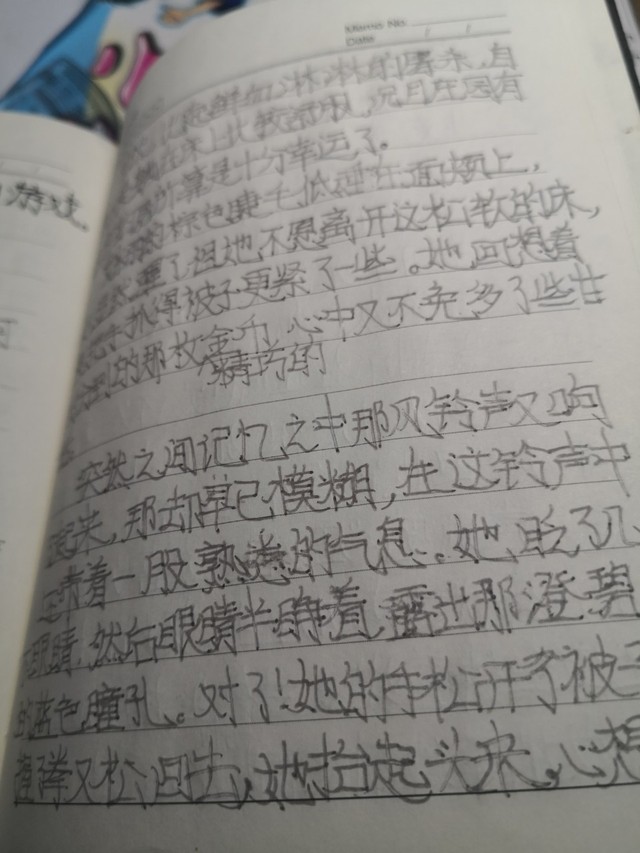 Memo No.
Date / /
游戏。
鲜血淋淋的 自
在床上比较 况且庄园有
算是十分幸运了。
棕色 低 在面颊上，
重了，但她不愿离开这松软的床，
抓得被子更紧了一些。她回想着
到的那枚金币，心中又不免多了些
精巧的
突然之间记忆之中那风铃声又响
起来，那却早已模糊，在这铃声中
带着一股熟悉的气息。她眨了几
眼睛，然后眼睛半睁着，露出那澄碧
的蓝色瞳孔。对了！她的手松开了被子
又松回去，她抬起头来，心想